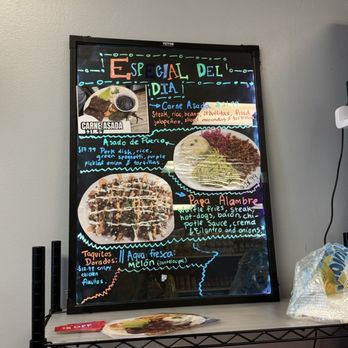 ESPECIAL DEL
DIA
Carne Asada
Steak, rice, beans, cebollitas, fried
jalapeños,
CARNE ASADA
Asado de Puerco
$17.99 Pork dish, rice,
green spaghetti, purple
pickled onion & tortillas
Papa Alambre
fries, steak,
hot-dogs, bacon, chi-
potle sauce, crema
& cilantro and onions.
Taquitos
Dorados:
$12.99 crispy
chicken
flautas.
Agua fresca:
Melon (cantaloupe)
OFF